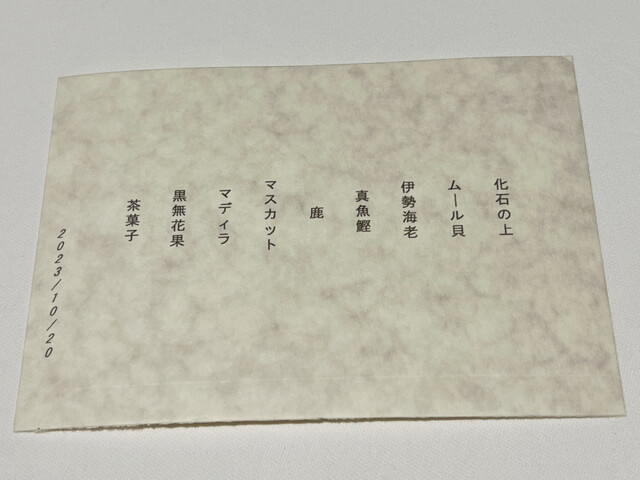 化石の上
ムール貝
伊勢海老
真魚鰹
鹿
マスカット
マディラ
黒無花果
茶菓子
2023/10/20